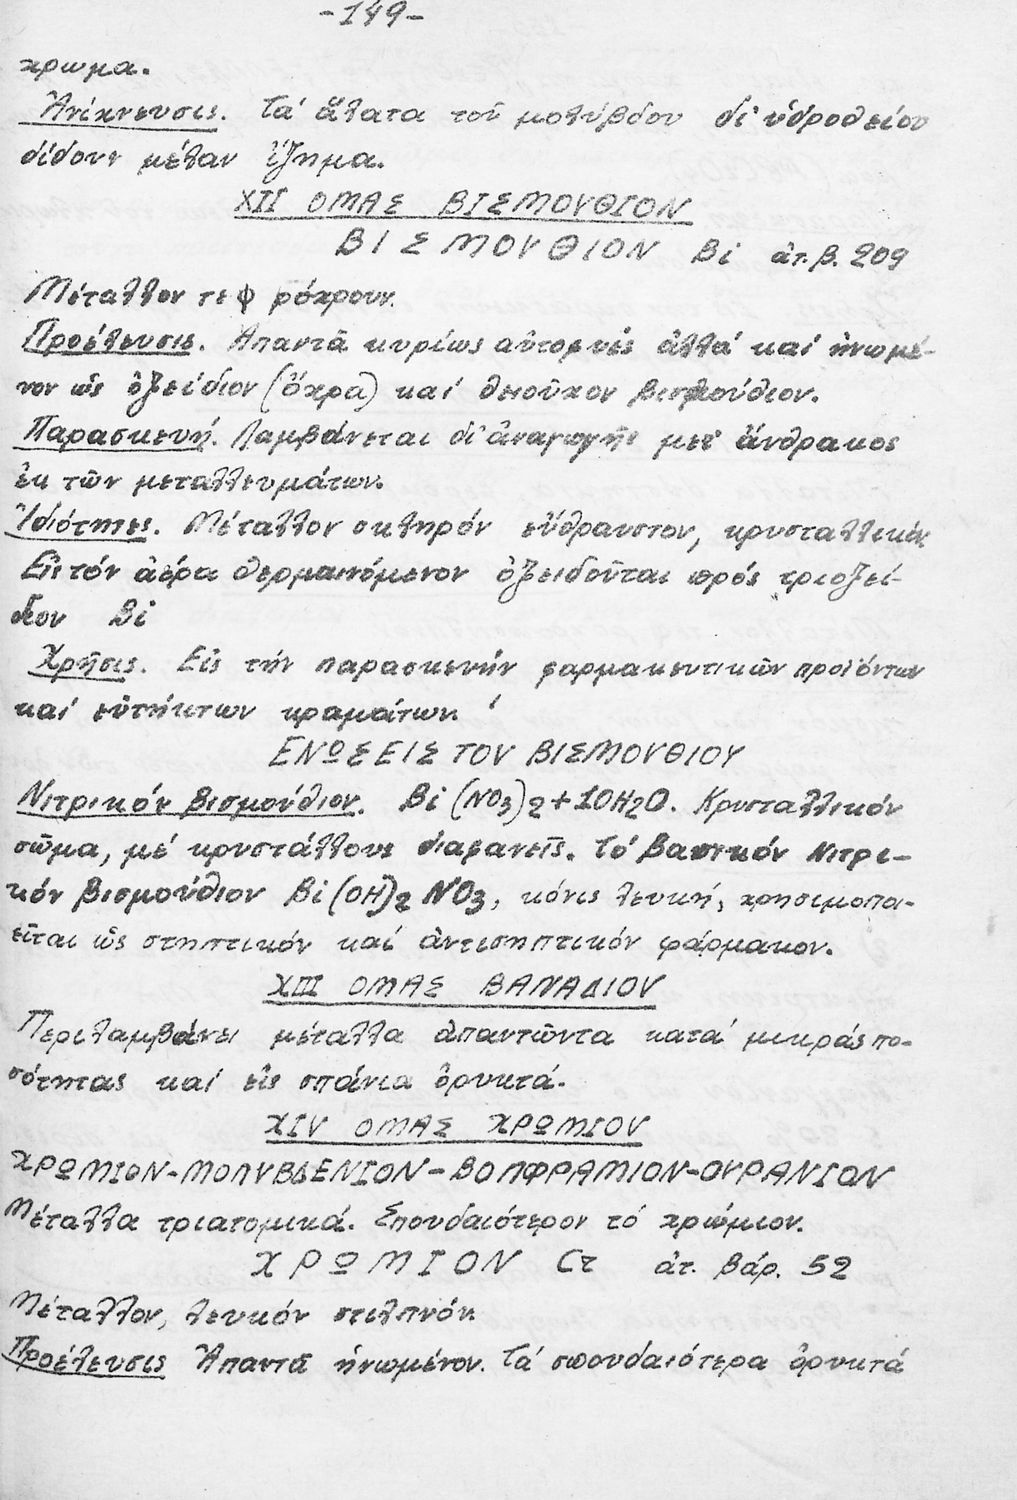 -149-
χρωμα.
Ἀνίχνευσις. Τά ἅλατα τοῦ μολύβδου δι' ὑδροθείου
δίδουν μέλαν ἵζημα.
XII ΟΜΑΣ ΒΙΣΜΟΥΘΙΟΝ
ΒΙΣΜΟΥΘΙΟΝ Bi ἀτ. β. 209
Μέταλλον τεφρόχρουν.
Προέλευσις. Ἀπαντᾶ κυρίως αὐτοφυές ἀλλά καί ἡνωμέ-
νον ὡς ὀξείδιον (ὄχρα) καί θειοῦχον βισμούθιον.
Παρασκευή. Λαμβάνεται δι' ἀναγωγῆς μετ' ἄνθρακος
ἐκ τῶν μεταλλευμάτων.
Ἰδιότητες. Μέταλλον σκληρόν εὔθραυστον, κρυσταλλικόν.
Εἰς τόν ἀέρα θερμαινόμενον ὀξειδοῦται πρός τριοξεί-
διον Bi
Χρῆσις. Εἰς τήν παρασκευήν φαρμακευτικῶν προϊόντων
καί εὐτήκτων κραμάτων.
ΕΝΩΣΕΙΣ ΤΟΥ ΒΙΣΜΟΥΘΙΟΥ
Νιτρικόν βισμούθιον. Bi (NO3)2+10H2O. Κρυσταλλικόν
σῶμα, μέ κρυστάλλους διαφανεῖς. Τό βασικόν Νιτρι-
κόν βισμούθιον Bi (OH)2 NO3, κόνις λευκή, χρησιμοποι-
εῖται ὡς στηπτικόν καί ἀντισηπτικόν φάρμακον.
XIII ΟΜΑΣ ΒΑΝΑΔΙΟΥ
Περιλαμβάνει μέταλλα ἀπαντῶντα κατά μικράς πο-
σότητας καί εἰς σπάνια ὀρυκτά.
XIV ΟΜΑΣ ΧΡΩΜΙΟΥ
ΧΡΩΜΙΟΝ-ΜΟΛΥΒΔΕΝΙΟΝ-ΒΟΛΦΡΑΜΙΟΝ-ΟΥΡΑΝΙΟΝ
Μέταλλα τριατομικά. Σπουδαιότερον τό χρώμιον.
ΧΡΩΜΙΟΝ Cr ἀτ. βάρ. 52
Μέταλλον, λευκόν στιλπνόν.
Προέλευσις Ἀπαντᾶ ἡνωμένον. Τά σπουδαιότερα ὀρυκτά